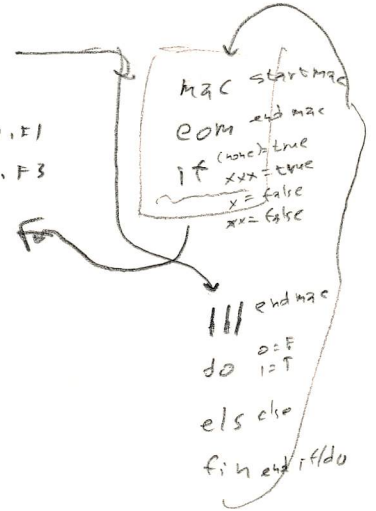 mac startmac
eom end mac
, F1
if (none)=true
xxx=true
, F3
x=false
xx=false
||| endmac
do 0=F
1=T
els else
fin end if/do